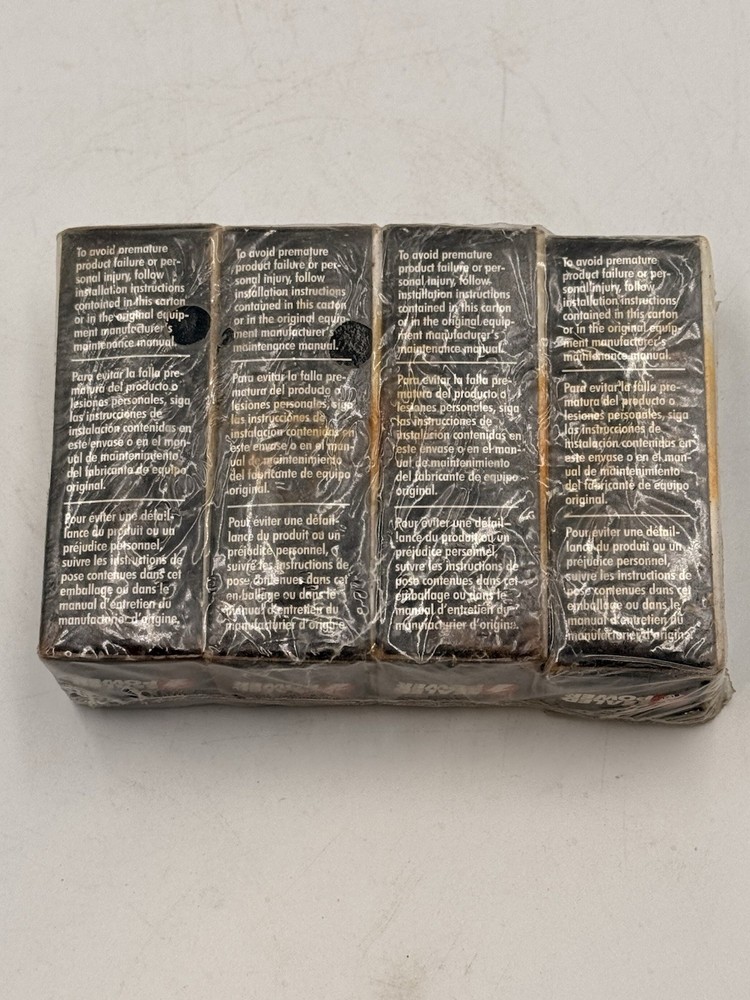 To avoid premature
product failure or per-
sonal injury, follow
installation instructions
contained in this carton
or in the original equip-
ment manufacturer's
maintenance manual.
Para evitar la falla pre-
matura del producto o
lesiones personales, siga
las instrucciones de
instalación contenidas en
este envase o en el man-
ual de mantenimiento
del fabricante de equipo
original.
Pour éviter une défail-
lance du produit ou un
préjudice personnel,
suivre les instructions de
pose contenues dans cet
emballage ou dans le
manual d'entretien du
manufacturier d'origine.
To avoid premature
product failure or per-
sonal injury, follow
installation instructions
contained in this carton
or in the original equip-
ment manufacturer's
maintenance manual.
Para evitar la falla pre-
matura del producto o
lesiones personales, siga
las instrucciones de
instalación contenidas en
este envase o en el man-
ual de mantenimiento
del fabricante de equipo
original.
Pour éviter une défail-
lance du produit ou un
préjudice personnel,
suivre les instructions de
pose contenues dans cet
emballage ou dans le
manual d'entretien du
manufacturier d'origine.
To avoid premature
product failure or per-
sonal injury, follow
installation instructions
contained in this carton
or in the original equip-
ment manufacturer's
maintenance manual.
Para evitar la falla pre-
matura del producto o
lesiones personales, siga
las instrucciones de
instalación contenidas en
este envase o en el man-
ual de mantenimiento
del fabricante de equipo
original.
Pour éviter une défail-
lance du produit ou un
préjudice personnel,
suivre les instructions de
pose contenues dans cet
emballage ou dans le
manual d'entretien du
manufacturier d'origine.
To avoid premature
product failure or per-
sonal injury, follow
installation instructions
contained in this carton
or in the original equip-
ment manufacturer's
maintenance manual.
Para evitar la falla pre-
matura del producto o
lesiones personales, siga
las instrucciones de
instalación contenidas en
este envase o en el man-
ual de mantenimiento
del fabricante de equipo
original.
Pour éviter une défail-
lance du produit ou un
préjudice personnel,
suivre les instructions de
pose contenues dans cet
emballage ou dans le
manual d'entretien du
manufacturier d'origine.